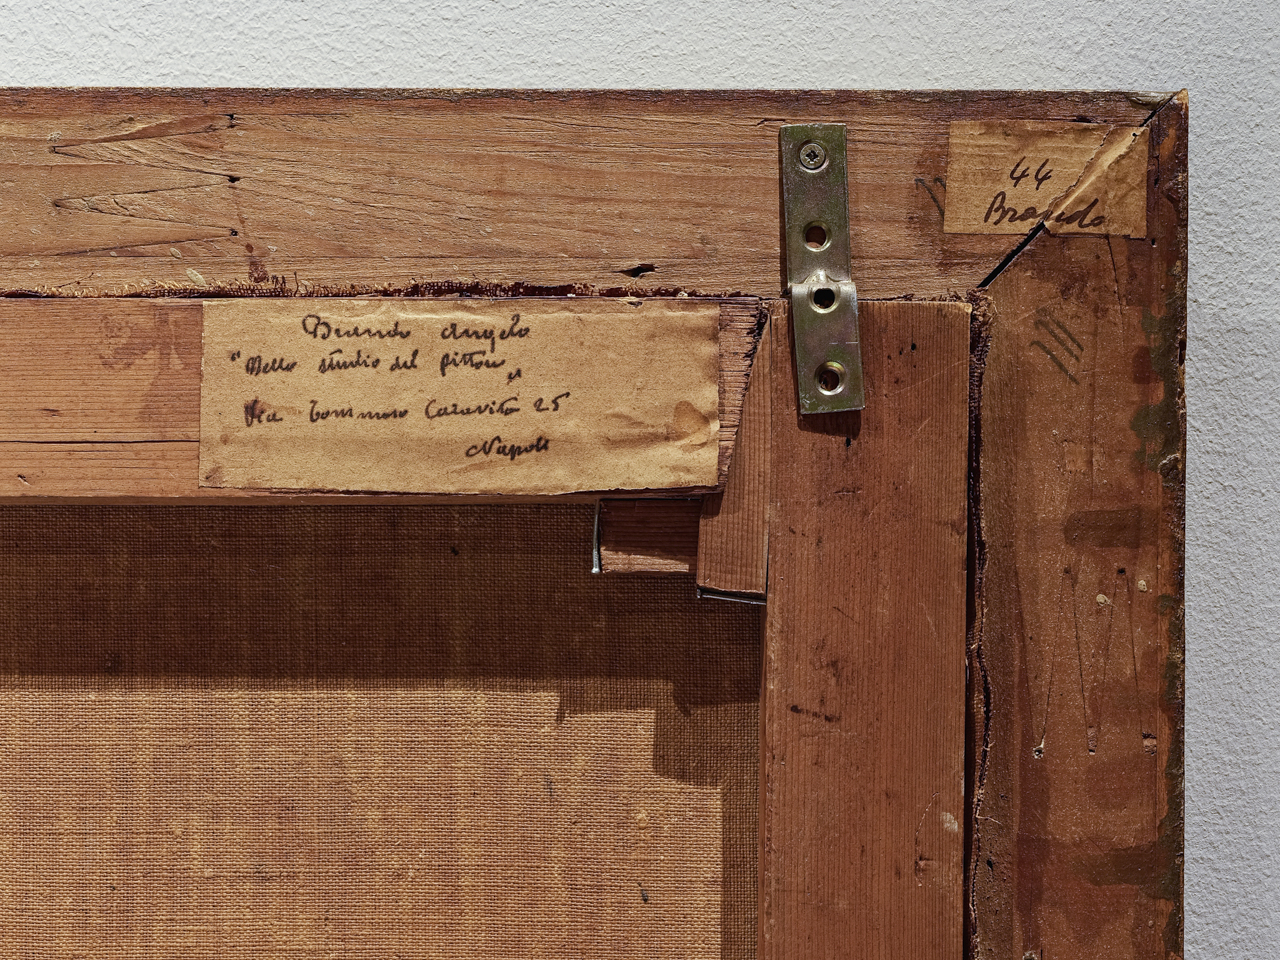 44
Brando
Brando Angelo
"Nello studio del pittore"
Via Tommaso Caravita 25
Napoli